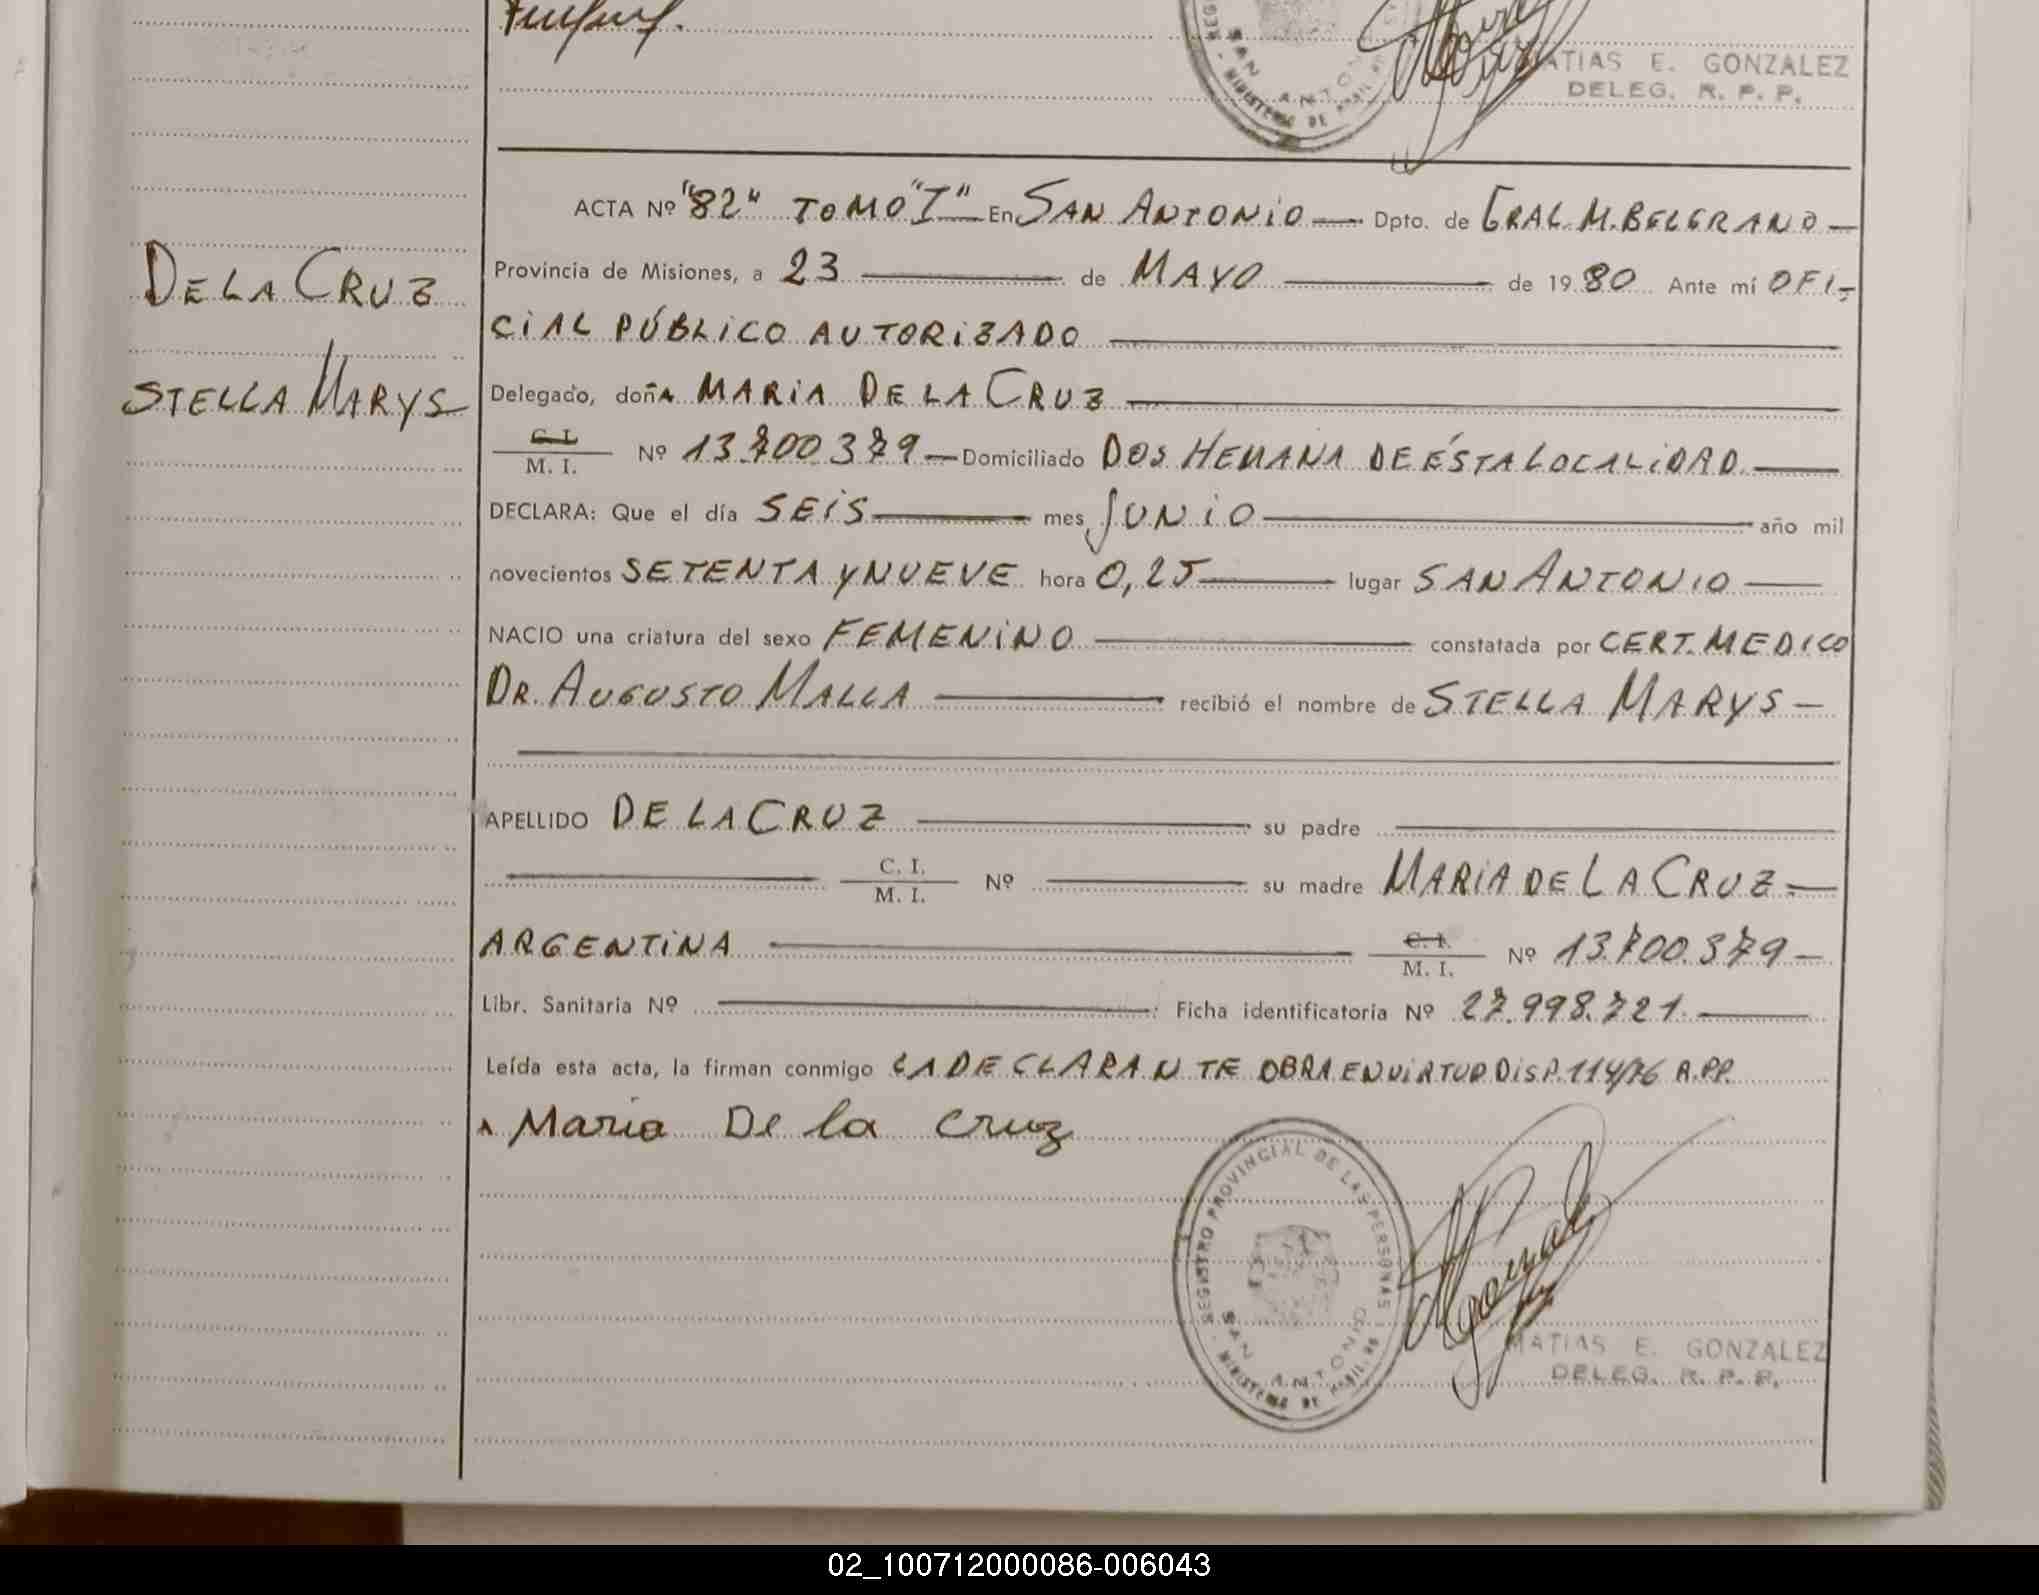 MATIAS E. GONZALEZ
DELEG. R. P. P.
ACTA Nº "82" TOMO "I" En SAN ANTONIO Dpto. de GRAL. M. BELGRANO
Provincia de Misiones, a 23 de MAYO de 1980 Ante mí OFI-
CIAL PÚBLICO AUTORIZADO
DE LA CRUZ
STELLA MARYS
Delegado, doña MARIA DE LA CRUZ
C. I.
M. I. Nº 13.700.379 Domiciliado DOS HEMANA DE ÉSTA LOCALIDAD
DECLARA: Que el día SEIS mes JUNIO año mil
novecientos SETENTA Y NUEVE hora 0,25 lugar SAN ANTONIO
NACIO una criatura del sexo FEMENINO constatada por CERT. MEDICO
DR. AUGUSTO MALLA recibió el nombre de STELLA MARYS
APELLIDO DE LA CRUZ su padre
C. I.
M. I. Nº su madre MARIA DE LA CRUZ
ARGENTINA C. I.
M. I. Nº 13.700.379
Libr. Sanitaria Nº Ficha identificatoria Nº 27.998.721
Leída esta acta, la firman conmigo LA DECLARANTE OBRA EN VIRTUD DISP. 114/76 R.PP.
Maria De la Cruz
REGISTRO PROVINCIAL DE LAS PERSONAS
SAN ANTONIO
MATIAS E. GONZALEZ
DELEG. R. P. P.
02_100712000086-006043